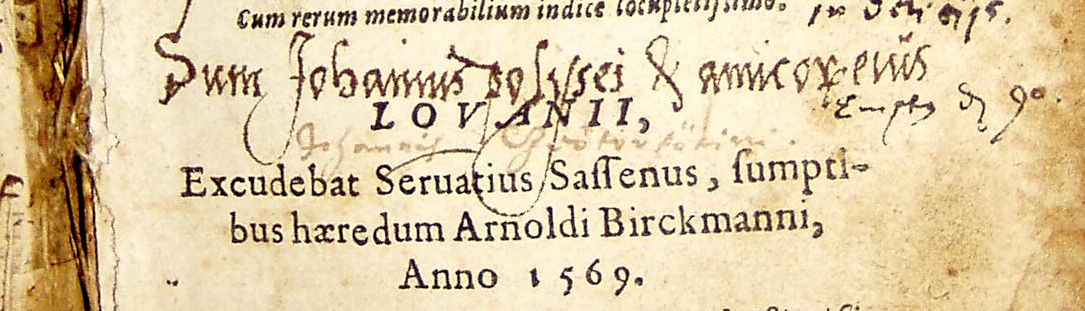 Cum rerum memorabilium indice locupletissimo.
Sum Johannis & amicor eius
LOVANII,
Johannis
Excudebat Seruatius Sassenus, sumpti-
bus hæredum Arnoldi Birckmanni,
Anno 1569.